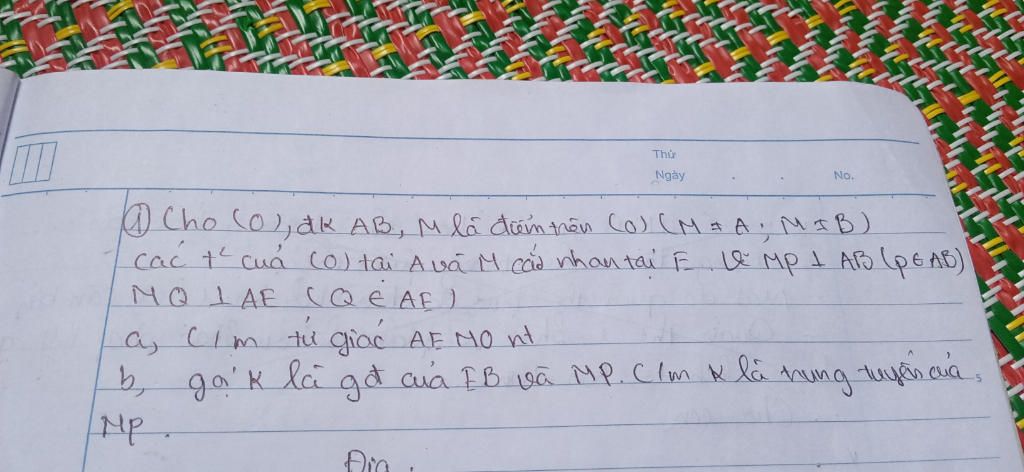 Thứ
Ngày . . No.
① Cho (O), đk AB, M là điểm trên (O) (M ≠ A ; M ≠ B)
các t² của (O) tại A và M cắt nhau tại E. Vẽ MP ⊥ AB (P ∈ AB)
MQ ⊥ AE (Q ∈ AE)
a, C/m tứ giác AEMO nt
b, gọi K là gđ của EB và MP. C/m K là trung tuyến của
MP.